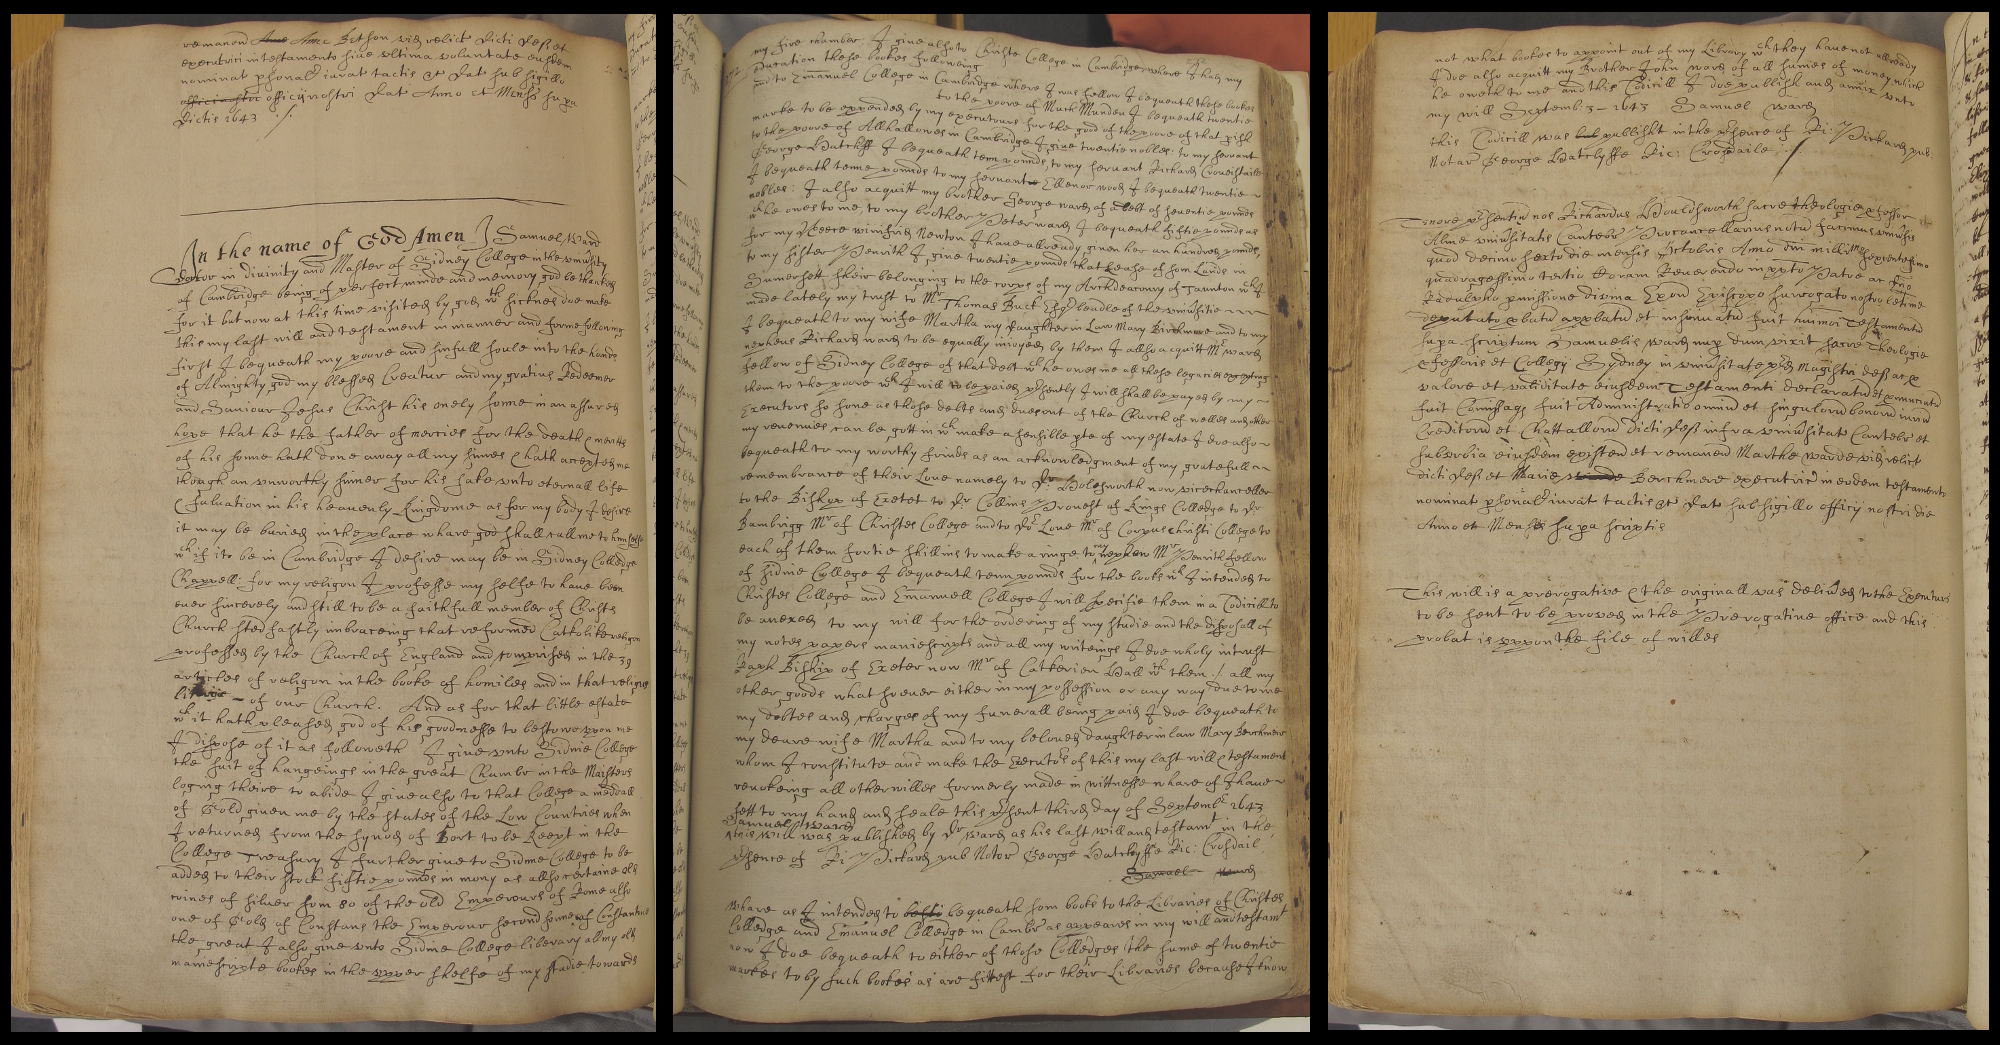 remanend Anne Bething vid relict dicti defti et
executrici in testamento sive ultima voluntate eiusdem
nominat personal iurat tactis &c dat sub sigillo
officij nostri dat Anno et Mense supra
dictis 1643
In the name of God Amen I Samuel Ward
Doctor in divinity and Master of Sidney College in the university
of Cambridge being of perfect minde and memory god be thanked
for it but now at this time visited by god wth sicknes doe make
this my last will and testament in manner and forme following
first I bequeath my poore and sinfull soule into the hands
of Almighty god my blessed Creatur and my gratius Redeemer
and Saviour Jesus Christ his onely sonne in an assured
hope that he the father of mercies for the death & meritts
of his sonne hath done away all my sinnes & hath accepted me
though an unworthy sinner for his sake unto eternall life
& saluation in his heavenly Kingdome as for my body I desire
it may be buried in the place whare god shall call me to himselfe
wch if it be in Cambridge I desire may be in Sidney Colledge
Chappell: for my religon I professe my selfe to have been
ever sincerely and still to be a faithfull member of Christs
Church stedfastly imbraceing that reformed Catholike religon
professed by the Church of England and comprised in the 39
articles of religon in the booke of homiles and in that religius
of our Church. And as for that little estate
wch it hath pleased god of his goodnesse to bestowe upon me
I dispose of it as followeth I give unto Sidnie College
the suit of hangeings in the great Chambr in the Maisters
loging theire to abide I give also to that College a meddall
of Gold given me by the states of the Low Countries when
I returned from the synod of Dort to be Keept in the
College Treasury I further give to Sidnie College to be
added to their stock fiftie pounds in mony as allso certaine old
coines of silver som 80 of the old Emperours of Rome also
one of Gold of Constans the Emperour second sonne of Constantine
the great I also give unto Sidnie College liberary all my old
manescripte bookes in the upper shelfe of my studie towards
my fire chamber: I give also to Christe College in Cambridge, where I had my
Education these bookes following
and to Emanuel College in Cambridge where I was fellow I bequeath these bookes
to the poore of Much Munden I bequeath twentie
marke to be expended by my executours for the good of the poore of that pish
to the poore of Allhallowes in Cambridge I give twentie nobles: to my servant
George Hatcliff I bequeath tenn pounds, to my servant Richard
I bequeath tenne pounds to my servant Ellenor wood I bequeath twentie
nobles: I also acquitt my brother George ward of a debt of seventie pounds
wch he owes to me, to my brother Peter ward I bequeath fiftie pounds as
for my Neece winifrid Newton I have allready given her an hundred pounds,
to my sister Penrith I give twentie pounds that lease of som Lands in
Sumersett sheir belonging to the corps of my Archdeaconry of Taunton wch I
made lately my trust to Mr Thomas Buck Esqr beadle of the universitie
I bequeath to my wife Martha my daughter in Law Mary Birchmore and to my
nepheus Richard ward to be equally inioyed by them I allso acquitt Mr ward
fellow of Sidney College of that debt wch he owes me all these legacies excepting
them to the poore wch I will to be paied presently I will shall be payed by my
Executors so sone as those debts and dues out of the Church of welles and other
my revenues can be gott in wch make a sensible pte of my estate I doe also
bequeath to my worthy frinds as an acknowledgment of my gratefull
remembrance of their Love namely to Dr Holesworth now vicechanceller
to the Bishop of Exeter to Dr Collins Provest of Kings Colledge to Dr
Bambrigg Mr of Christes College and to Dr Love Mr of Corpus christi College to
each of them fortie shillins to make a ringe to my nephew Mr Penrith fellow
of Sidnie College I bequeath tenn pounds for the books wch I intended to
Christes College and Emanuell College I will specifie them in a Codicill to
be anexed to my will for the ordering of my studie and the disposall of
my notes papers maniescripts and all my writeings I doe wholy intrust
Raph Bishop of Exeter now Mr of Catherien Hall wth them: / all my
other goods what soever either in my possession or any way due to me
my debtes and charges of my funerall being paid I doe bequeath to
my deare wife Martha and to my beloved daughter in law Mary Berchmore
whom I constitute and make the Executors of this my last will & testament
revokeing all other willes formerly made in wittnesse whare of I have
sett to my hand and seale this psent third day of Septembr 1643
Samuel Ward
this will was published by Dr ward as his last will and testamt in the
psence of Ri: Pickard pub Notar George Hatclyffe Ric: Crosdail
Samuel Ward
whare as I intended to bequeath som books to the Libraries of Christes
Colledge and Emanuel Colledge in Cambr as appeares in my will and testamt
now I doe bequeath to either of those Colledges the sume of twentie
markes to by such bookes as are fittest for their Libraries because I know
not what bookes to appoint out of my Library wch they have not allready
I doe also acquitt my Brother John ward of all sumes of money which
he oweth to me and this Codicill I doe publish and annix unto
my will Septemb 3 - 1643 Samuel Ward
this Codicill was but publisht in the psence of Ri: Pickard pub:
Notar George Hatclyffe Ric: Crosdaile
Tenore psentiu nos Richardus Houldsworth sacre theologie pfessor
Alme universitatis Cantebr Procancellarius notu facimus universis
quod decimo sexto die mensis Octobris Anno dni millimo sexcentesimo
quadragessimo tertio Coram Reverendo in xpto Patre ac Dno
Radulpho pmissione divina Exon Episcopo surrogato nostro letime
deputato pbatu approbatu et insinuatu fuit huimoi Testamentu
supra scriptum Samuelis ward nup dum vixit sacre Theologie
pfessoris et Collegij Sydney in universitate pred Magistri defti ac p
valore et validitate eiusdem Testamenti declaratu et pnunciatu
fuit Comissaq fuit Administratio omniu et singuloru bonoru iuriu
Creditoru et Chattalloru dicti defti infra universitate Cantebr et
suburbia eiusdem existen et remanen Marthe warde vid relict
dicti defti et Marie Berchmere executric in eodem testamento
nominat psonal iurat tactis &c Dat sub sigillo officij nostri die
Anno et Mense supra scriptis
This will is a prerogative & the originall was delived to the Exenturs
to be sent to be proved in the Prerogative office and this
probat is uppon the file of willes